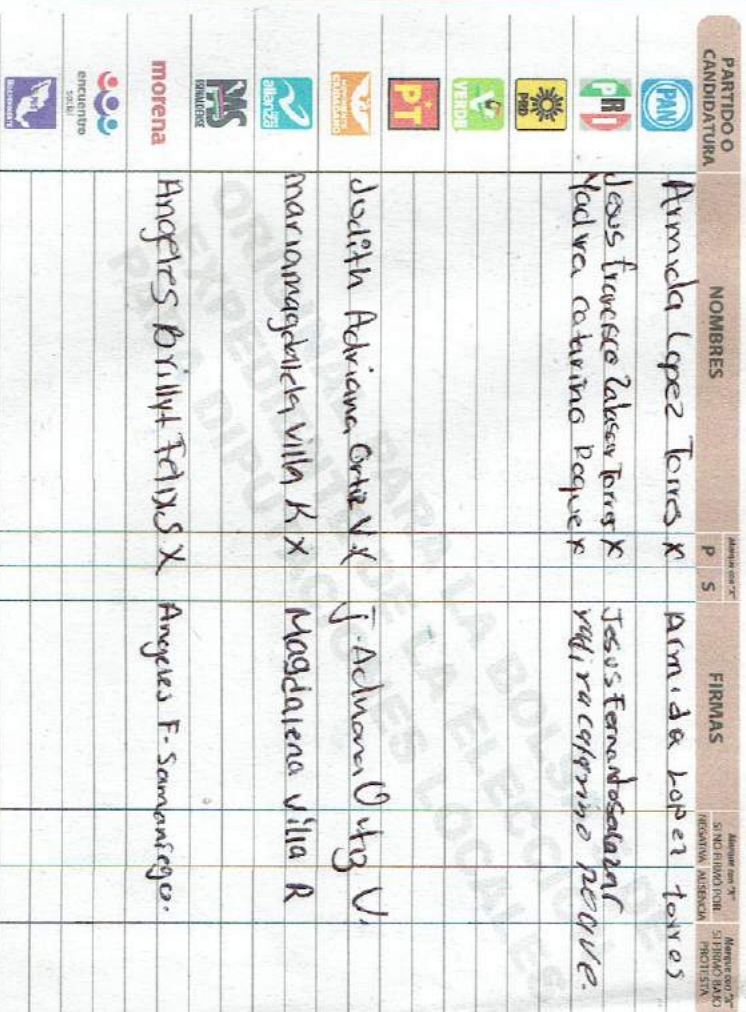 PARTIDO O CANDIDATURA
NOMBRES
Marque con "X"
P S
FIRMAS
Marque con "X" SI NO FIRMÓ POR
NEGATIVA AUSENCIA
Marque con "X" SI FIRMÓ BAJO PROTESTA
PAN Armida Lopez Torres X Armida Lopez torres
PRI Jesus francisco Torres X Jesus Fernando salazar
Yadira catarino Roque X
PRD
VERDE
PT
MOVIMIENTO CIUDADANO Judith Adriana Ortiz V X J. Adriana Ortiz V.
alianza mariamagdalela villa K X Magdalena villa R
PAS SINALOENSE
morena Angeles Brillyt Felix S X Angeles F. Samaniego.
encuentro social
INDEPENDIENTE
ORIGINAL PARA LA BOLSA DE
EXPEDIENTE DE LA ELECCIÓN
PARA DIPUTACIONES LOCALES